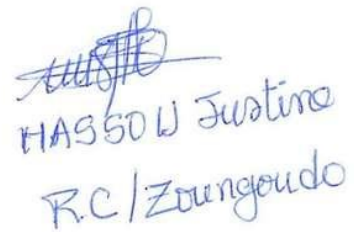 HASSOW Justine
R.C/Zoungoudo